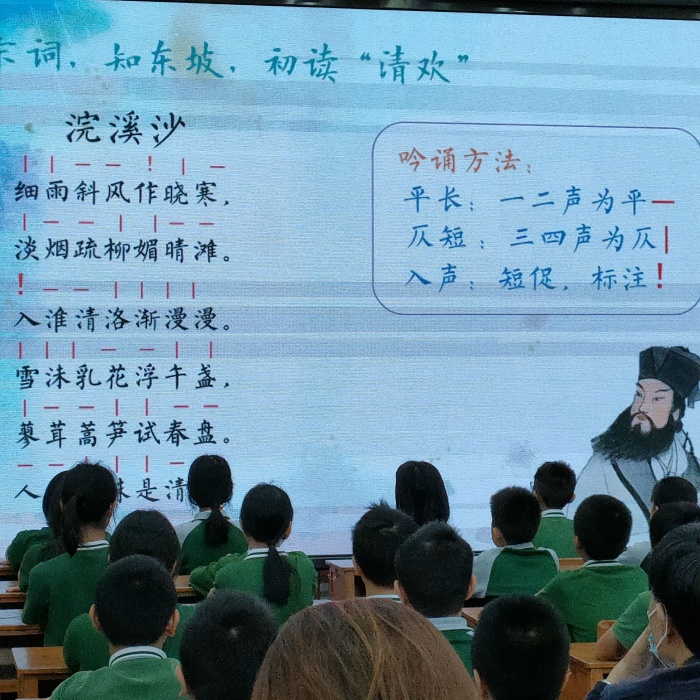 词，知东坡，初读“清欢”
浣溪沙
细雨斜风作晓寒，
淡烟疏柳媚晴滩。
入淮清洛渐漫漫。
雪沫乳花浮午盏，
蓼茸蒿笋试春盘。
人 味是清
吟诵方法：
平长：一二声为平—
仄短：三四声为仄|
入声：短促，标注!